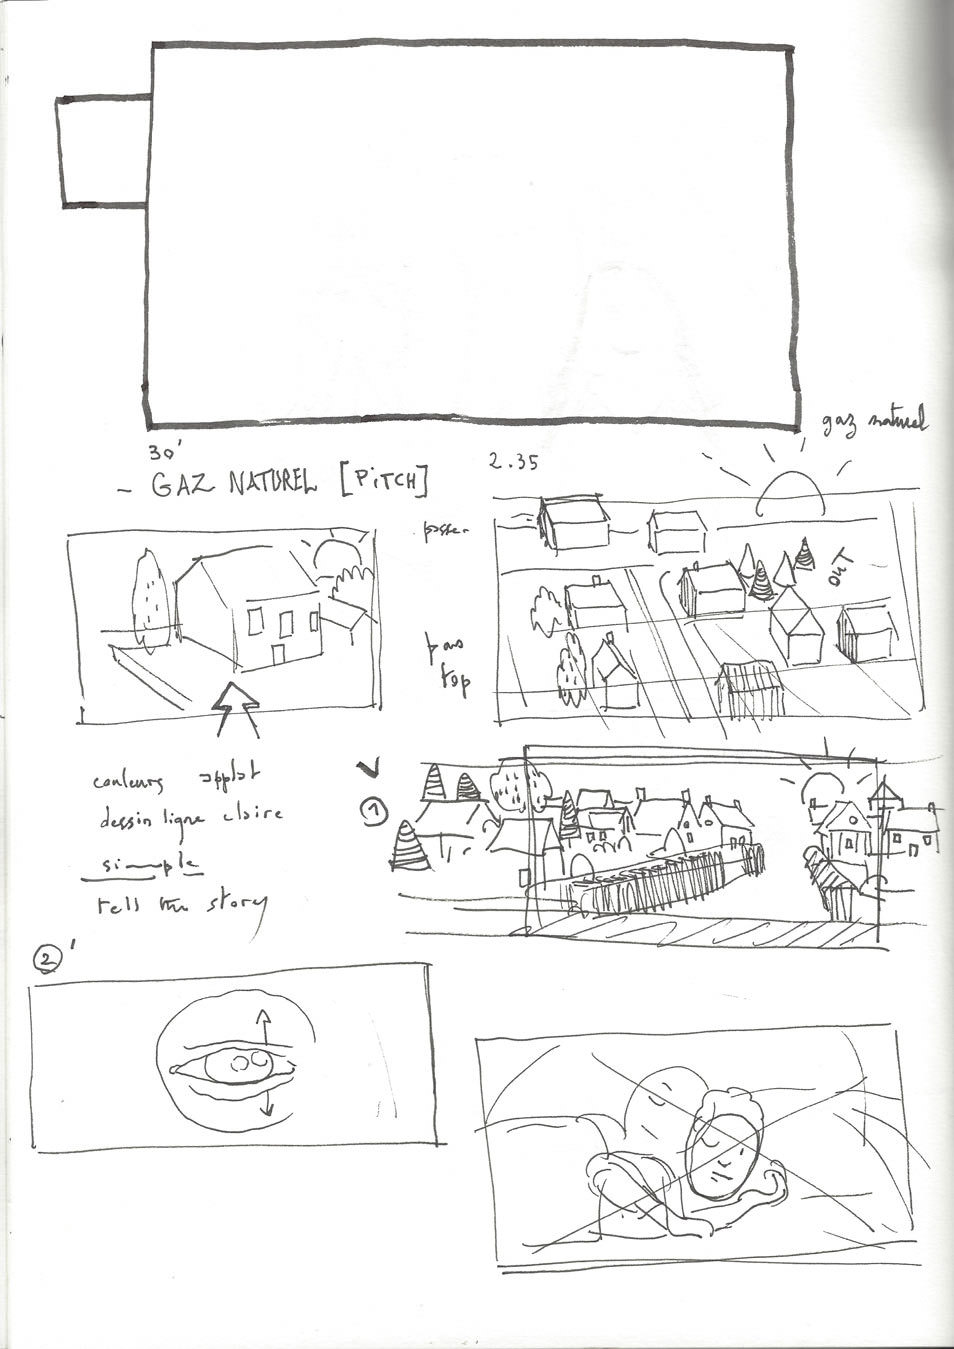 gaz naturel
30'
2.35
- GAZ NATUREL [PITCH]
passer
OUT
pas
top
couleurs applat
dessin ligne claire
simple
tell the story
1
2'